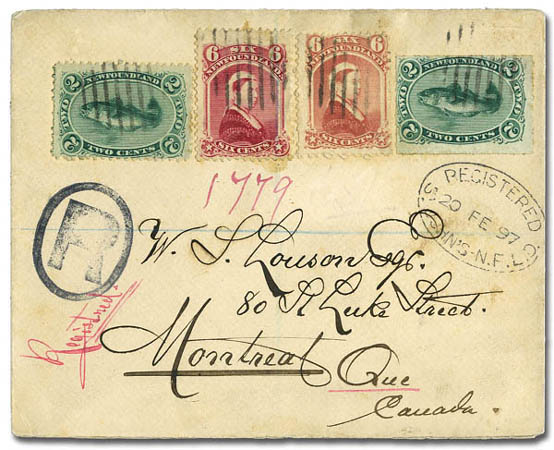 2 NEWFOUNDLAND 2
TWO TWO
TWO CENTS
6 SIX 6
NEWFOUNDLAND
SIX CENTS
6 SIX 6
NEWFOUNDLAND
SIX CENTS
2 NEWFOUNDLAND 2
TWO TWO
TWO CENTS
1779
REGISTERED
20 FE 97
ST. JOHN'S·N.F.L.D
R
W. S. Louson Esqr.
80 St Luke Street.
Registered.
Montreal Que
Canada.